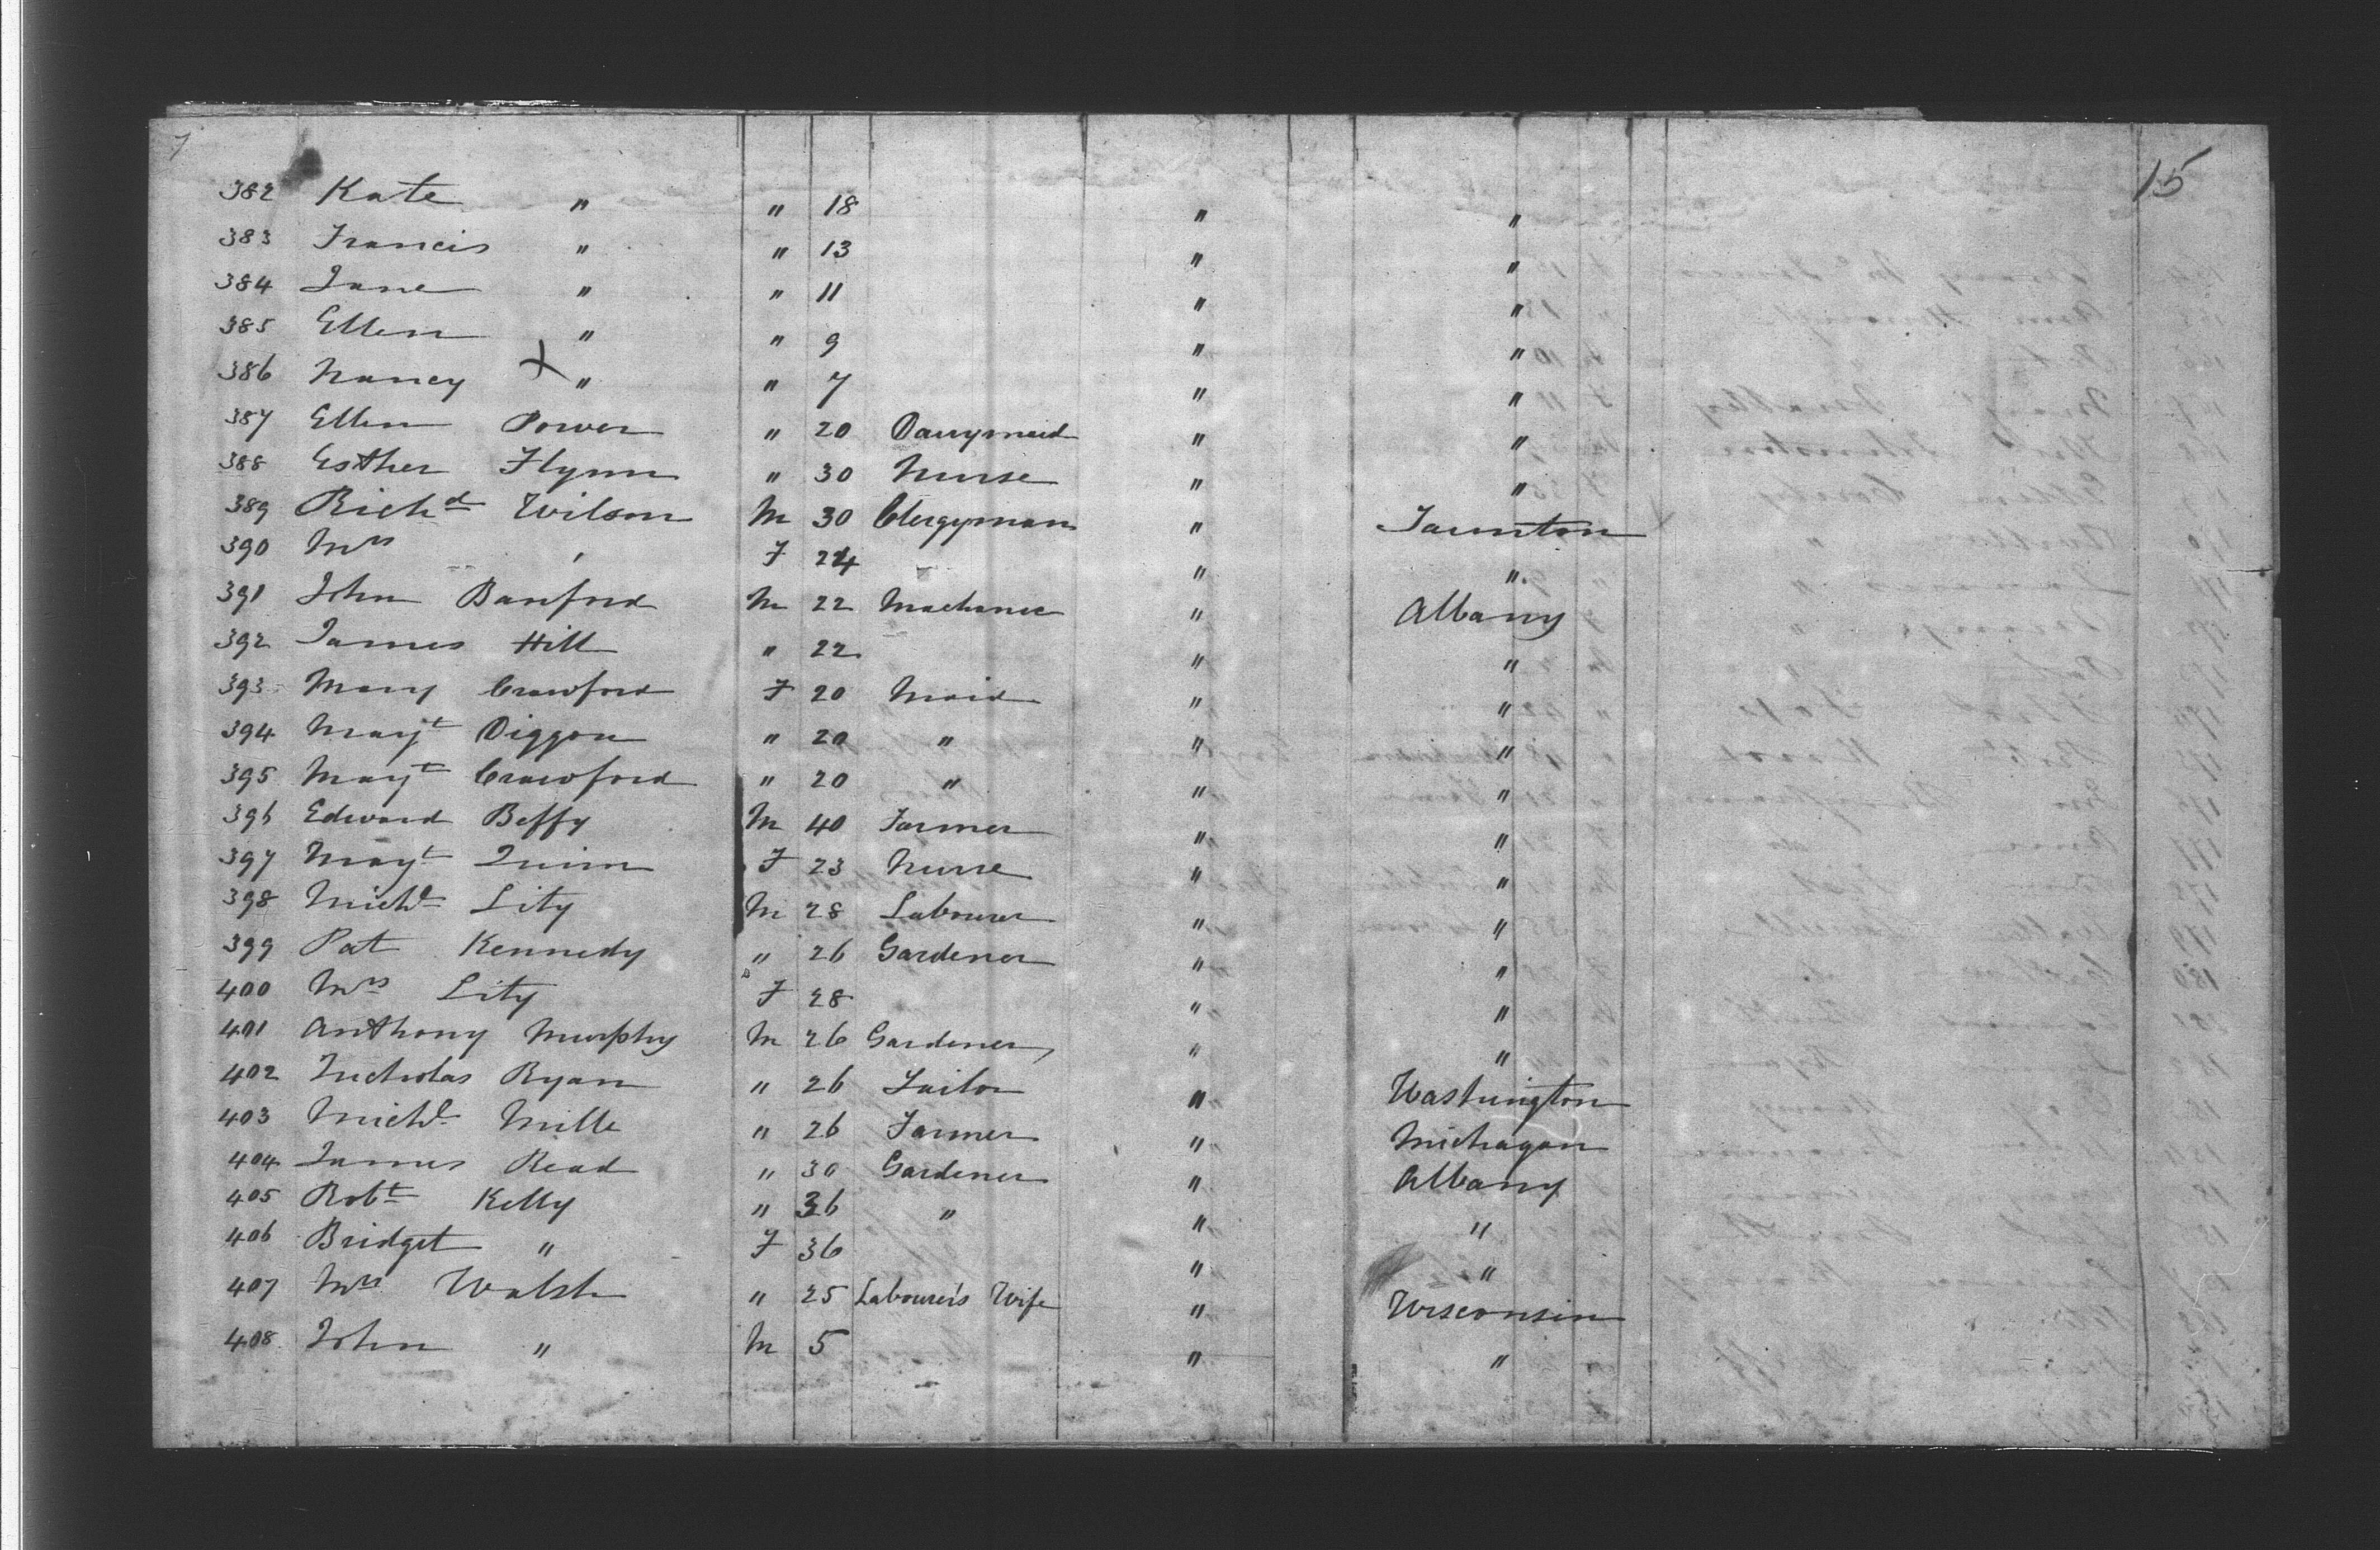 7
15
382 Kate " " 18 " "
383 Francis " " 13 " "
384 Jane " " 11 " "
385 Ellen " " 9 " "
386 Nancy X " " 7 " "
387 Ellen Power " 20 Dairymaid " "
388 Esther Flynn " 30 Nurse " "
389 Richd Wilson M 30 Clergyman " Taunton
390 Mrs " F 24 " "
391 John Banford M 22 Mechanic " Albany
392 James Hill " 22 " "
393 Mary Crawford F 20 Maid " "
394 Margt Diggon " 20 " " "
395 Margt Crawford " 20 " " "
396 Edward Beffy M 40 Farmer " "
397 Margt Quinn F 23 Nurse " "
398 Michl Lity M 28 Labourer " "
399 Pat Kennedy " 26 Gardener " "
400 Mrs Lity F 28 " "
401 Anthony Murphy M 26 Gardener " "
402 Nicholas Ryan " 26 Tailor " Washington
403 Michl Mille " 26 Farmer " Michagan
404 James Read " 30 Gardener " Albany
405 Robt Kelly " 36 " " "
406 Bridget " F 36 " "
407 Mrs Walsh " 25 Labourer's Wife " Wisconsin
408 John " M 5 " "